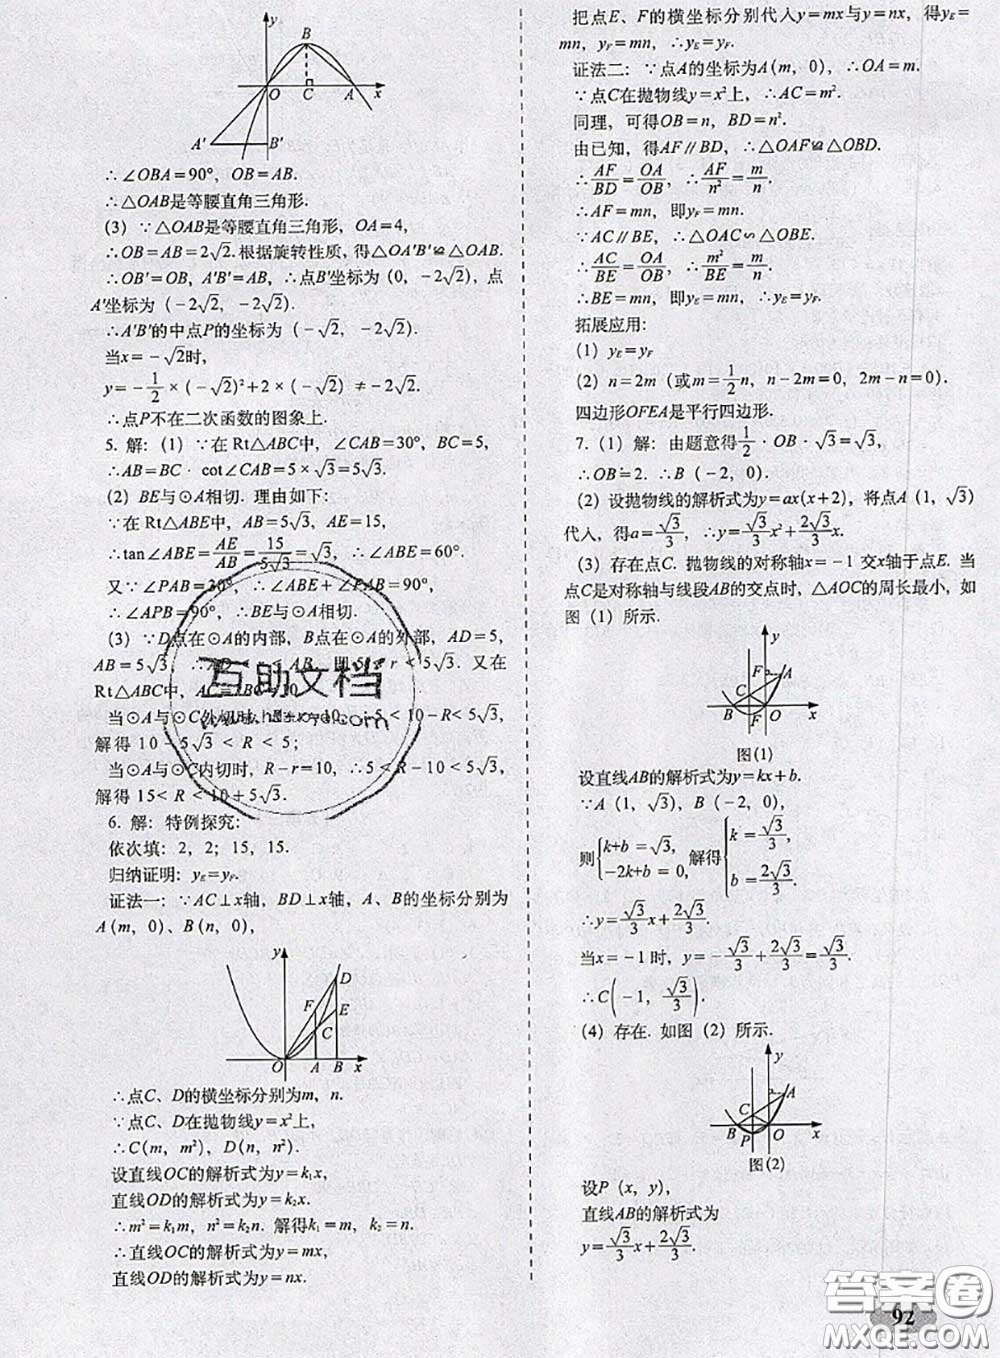 y
B
O C A x
A' B'
∴∠OBA=90°，OB=AB.
∴△OAB是等腰直角三角形.
(3) ∵△OAB是等腰直角三角形，OA=4，
∴OB=AB=2√2. 根据旋转性质，得△OA'B'≌△OAB.
∴OB'=OB，A'B'=AB，∴点B'坐标为 (0，-2√2，点
A'坐标为 (-2√2，-2√2).
∴A'B'的中点P的坐标为 (-√2，-2√2).
当x=-√2时，
y=-1/2×(-√2)²+2×(-√2)≠-2√2.
∴点P不在二次函数的图象上.
5. 解：(1) ∵在Rt△ABC中，∠CAB=30°，BC=5，
∴AB=BC·cot∠CAB=5×√3=5√3.
(2) BE与⊙A相切. 理由如下：
∵在Rt△ABE中，AB=5√3，AE=15，
∴tan∠ABE=AE/AB=15/5√3=√3，∴∠ABE=60°.
又∵∠PAB=30°，∴∠ABE+∠PAB=90°，
∴∠APB=90°，∴BE与⊙A相切.
(3) ∵D点在⊙A的内部，B点在⊙A的外部，AD=5，
AB=5√3，∴AD<r<AB，即5<r<5√3. 又在
Rt△ABC中，AC=2BC=10
当⊙A与⊙C外切时，R+r=10，∴5<10-R<5√3，
解得10-5√3<R<5；
当⊙A与⊙C内切时，R-r=10，∴5<R-10<5√3，
解得15<R<10+5√3.
6. 解：特例探究：
依次填：2，2；15，15.
归纳证明：yE=yF.
证法一：∵AC⊥x轴，BD⊥x轴，A、B的坐标分别为
A(m，0)、B(n，0)，
y
D
F E
C
O A B x
∴点C、D的横坐标分别为m，n.
∵点C、D在抛物线y=x²上，
∴C(m，m²)，D(n，n²).
设直线OC的解析式为y=k₁x，
直线OD的解析式为y=k₂x.
∴m²=k₁m，n²=k₂n. 解得k₁=m，k₂=n.
∴直线OC的解析式为y=mx，
直线OD的解析式为y=nx.
把点E、F的横坐标分别代入y=mx与y=nx，得yE=
mn，yF=mn，∴yE=yF.
证法二：∵点A的坐标为A(m，0)，∴OA=m.
∵点C在抛物线y=x²上，∴AC=m².
同理，可得OB=n，BD=n².
由已知，得AF∥BD，∴△OAF≌△OBD.
∴AF/BD=OA/OB，∴AF/n²=m/n.
∴AF=mn，即yF=mn.
∵AC∥BE，∴△OAC∽△OBE.
∴AC/BE=OA/OB，∴m²/BE=m/n.
∴BE=mn，即yE=mn，∴yE=yF.
拓展应用：
(1) yE=yF
(2) n=2m (或m=1/2n，n-2m=0，2m-n=0).
四边形OFEA是平行四边形.
7. (1) 解：由题意得1/2·OB·√3=√3，
∴OB=2. ∴B (-2，0).
(2) 设抛物线的解析式为y=ax(x+2)，将点A (1，√3)
代入，得a=√3/3，∴y=√3/3x²+2√3/3x.
(3) 存在点C. 抛物线的对称轴x=-1交x轴于点E. 当
点C是对称轴与线段AB的交点时，△AOC的周长最小，如
图 (1) 所示.
y
F A
C
B F O x
图(1)
设直线AB的解析式为y=kx+b.
∵A (1，√3)，B (-2，0)，
则{k+b=√3，-2k+b=0，解得{k=√3/3，b=2√3/3.
∴y=√3/3x+2√3/3.
当x=-1时，y=-√3/3+2√3/3=√3/3.
∴C(-1，√3/3).
(4) 存在. 如图 (2) 所示.
y
A
C
B P O x
图(2)
设P (x，y)，
直线AB的解析式为
y=√3/3x+2√3/3.
92
互助文档
答案圈
MXQE.COM